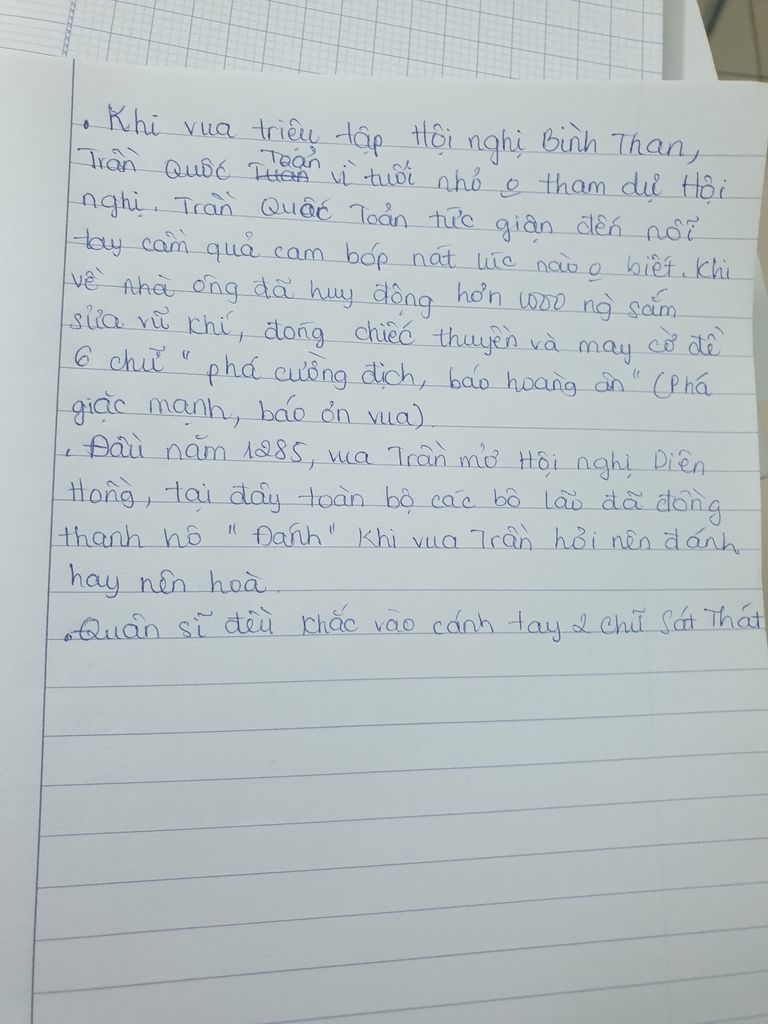 . Khi vua triệu tập Hội nghị Bình Than,
Trần Quốc Toản vì tuổi nhỏ o tham dự Hội
nghị. Trần Quốc Toản tức giận đến nỗi
tay cầm quả cam bóp nát lúc nào o biết. Khi
về nhà ông đã huy động hơn 1000 ng` sắm
sửa vũ khí, đóng chiếc thuyền và may cờ đề
6 chữ "phá cường địch, báo hoàng ân" (Phá
giặc mạnh, báo ơn vua)
. Đầu năm 1285, vua Trần mở Hội nghị Diên
Hồng, tại đây toàn bộ các bô lão đã đồng
thanh hô "Đánh" khi vua Trần hỏi nên đánh
hay nên hoà.
. Quân sĩ đều khắc vào cánh tay 2 chữ Sát Thát